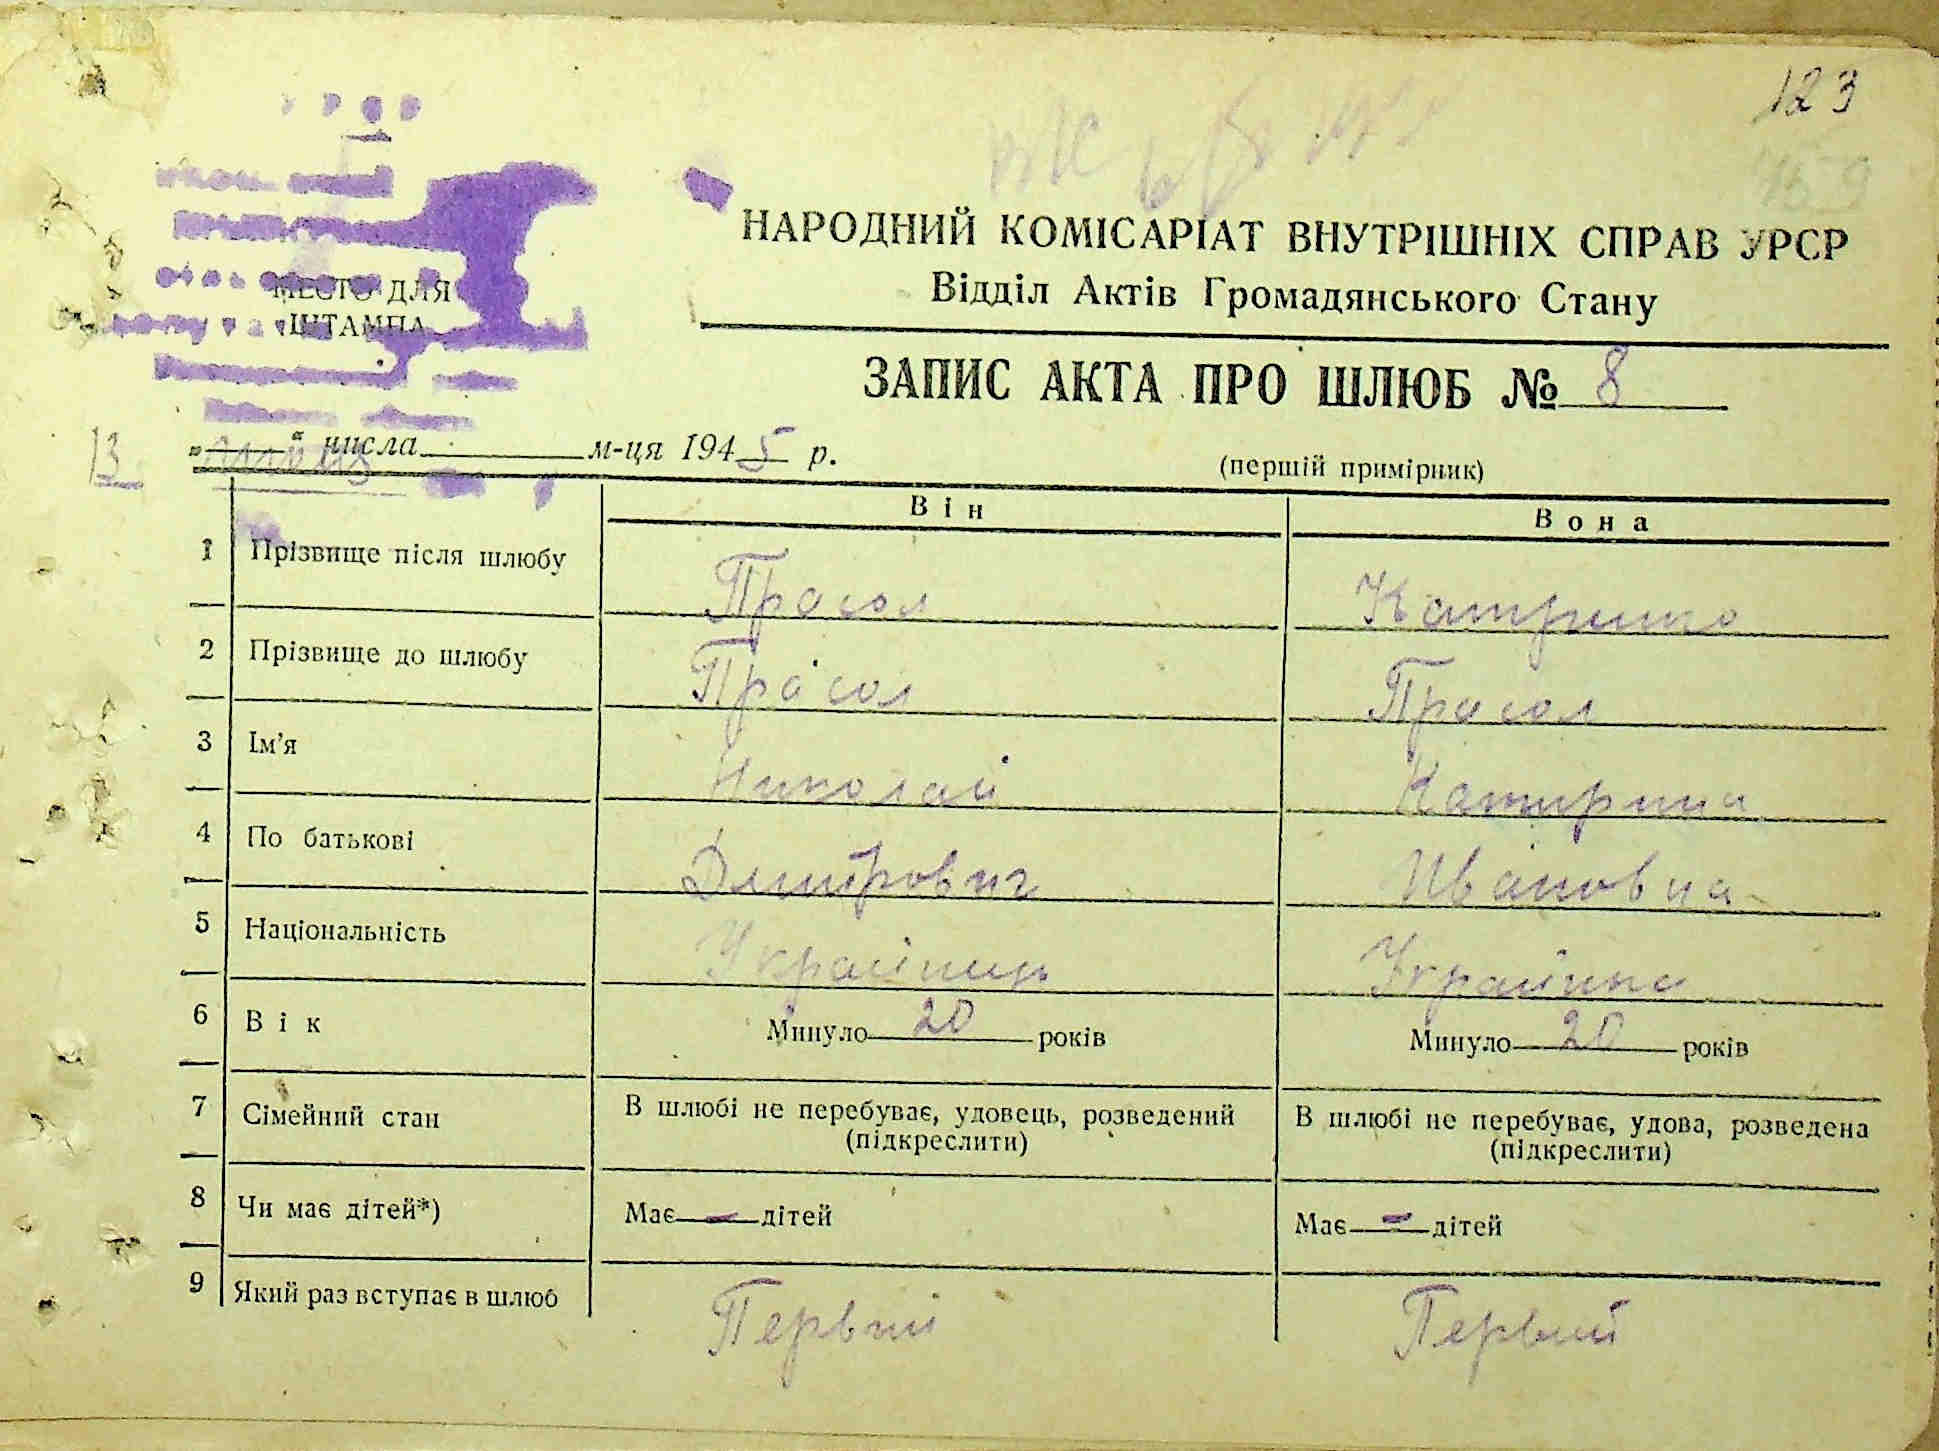 123
НАРОДНИЙ КОМІСАРІАТ ВНУТРІШНІХ СПРАВ УРСР
Відділ Актів Громадянського Стану
МЕСТО ДЛЯ
ШТАМПА
ЗАПИС АКТА ПРО ШЛЮБ № 8
13 „ “ числа м-ця 1945 р.
(першій примірник)
Він Вона
1 Прізвище після шлюбу Прасол
2 Прізвище до шлюбу Прасол Прасол
3 Ім’я Николай Катирина
4 По батькові Дмитрович Ивановна
5 Національність Украінець Украінка
6 Вік Минуло 20 років Минуло 20 років
7 Сімейний стан В шлюбі не перебуває, удовець, розведений (підкреслити) В шлюбі не перебуває, удова, розведена (підкреслити)
8 Чи має дітей*) Має — дітей Має — дітей
9 Який раз вступає в шлюб Первий Первий